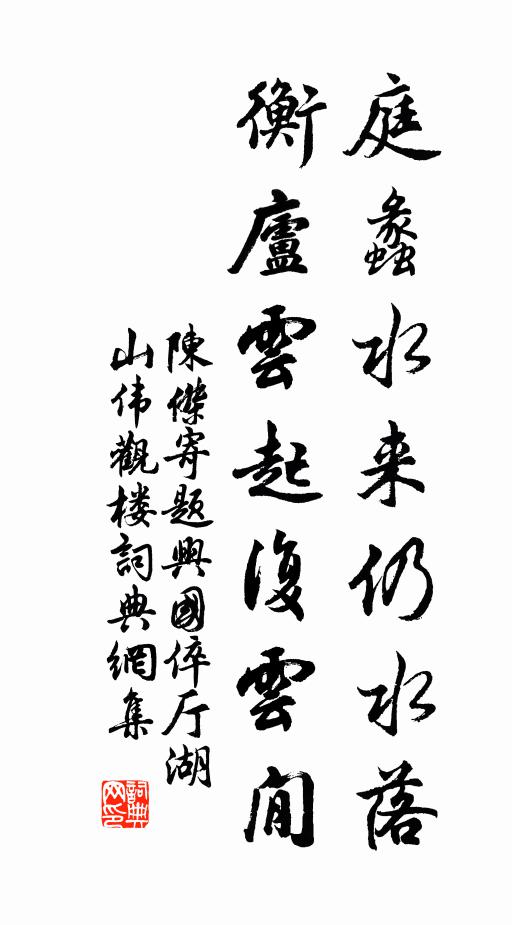 庭蠡水来仍水落
衡廬雲起復雲閒
陳傑寄題興國倅厅湖
山伟觀楼詞典網集
詞典
网印